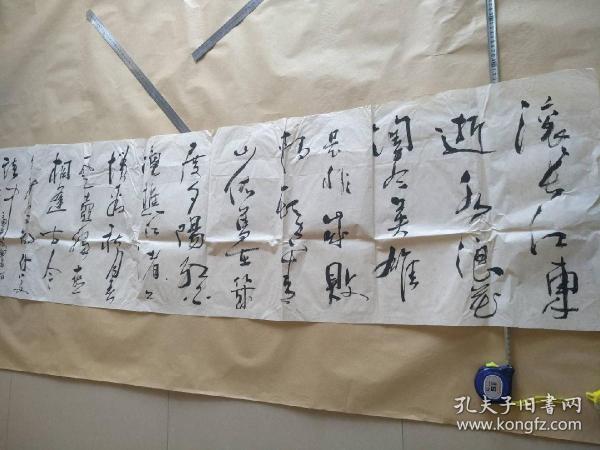 滚滚长江东
逝水浪花
淘尽英雄
是非成败
转头空青
山依旧在几
度夕阳红白
渔樵江渚上
惯看秋月春
风一壶浊酒喜
相逢古今
多少事都付笑
谈中
孔夫子旧书网
www.kongfz.com